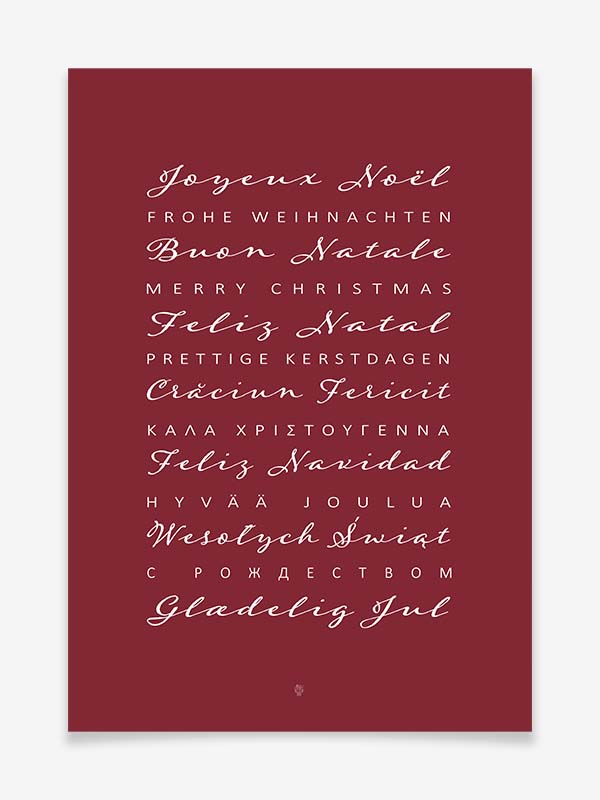 Joyeux Noël
FROHE WEIHNACHTEN
Buon Natale
MERRY CHRISTMAS
Feliz Natal
PRETTIGE KERSTDAGEN
Crăciun Fericit
ΚΑΛΑ ΧΡΙΣΤΟΥΓΕΝΝΑ
Feliz Navidad
HYVÄÄ JOULUA
Wesołych Świąt
С РОЖДЕСТВОМ
Glædelig Jul